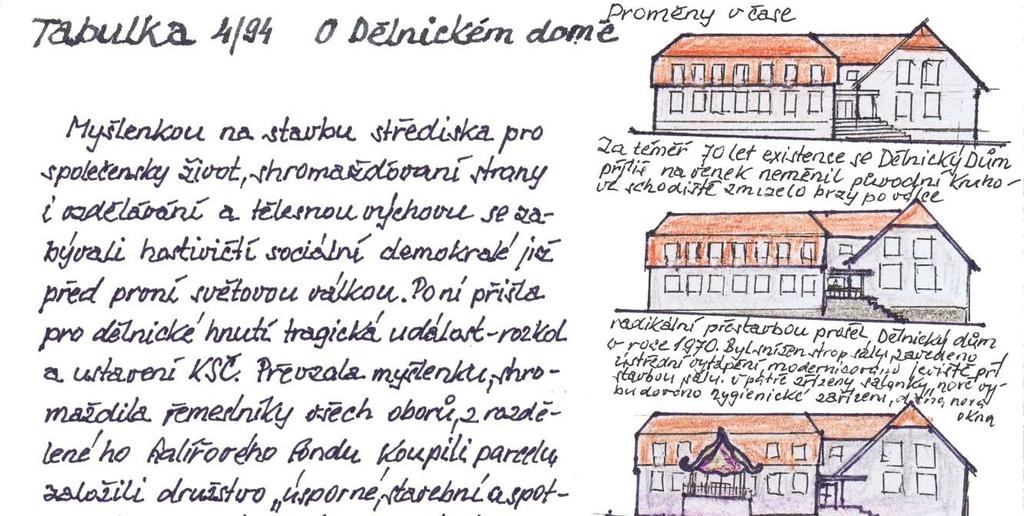 Tabulka 4/94 O Dělnickém domě
Myšlenkou na stavbu střediska pro
společenský život, shromažďovaní strany
i vzdělávání a tělesnou výchovu se za-
bývali hostivičtí sociální demokraté již
před první světovou válkou. Po ní přišla
pro dělnické hnutí tragická událost - rozkol
a ustavení KSČ. Převzala myšlenku, shro-
maždila řemeslníky všech oborů, z rozdě-
leného halířového fondu koupili parcelu,
založili družstvo "úsporné, stavební a spot-
Proměny v čase
Za téměř 70 let existence se Dělnický Dům
příliš navenek neměnil původní kruho-
vé schodiště zmizelo brzy po válce
radikální přestavbou prošel Dělnický dům
v roce 1970. Byl snížen strop sálu, zavedeno
ústřední vytápění, modernizováno jeviště pří
stavbou sálu. v patře zřízeny salonky, nově vy-
budováno hygienické zařízení, nová
okna